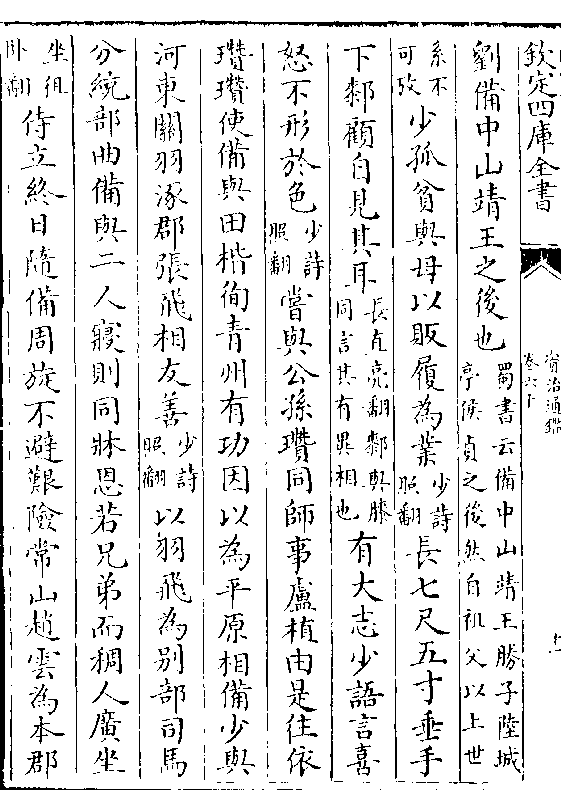 欽定四庫全書
資治通鑑
卷六十
劉備中山靖王之後也蜀書云備中山靖王勝子陸城亭侯貞之後然自祖父以上世
系不可攷少孤貧與母以販履為業少詩照翻長七尺五寸垂手
下膝顧自見其耳長直亮翻厀與膝同言其有異相也有大志少語言喜
怒不形於色少詩照翻嘗與公孫瓚同師事盧植由是往依
瓚瓚使備與田楷徇青州有功因以為平原相備少與
河東關羽涿郡張飛相友善少詩照翻以羽飛為別部司馬
分統部曲備與二人寢則同牀恩若兄弟而稠人廣坐
坐徂卧翻侍立終日隨備周旋不避艱險常山趙雲為本郡